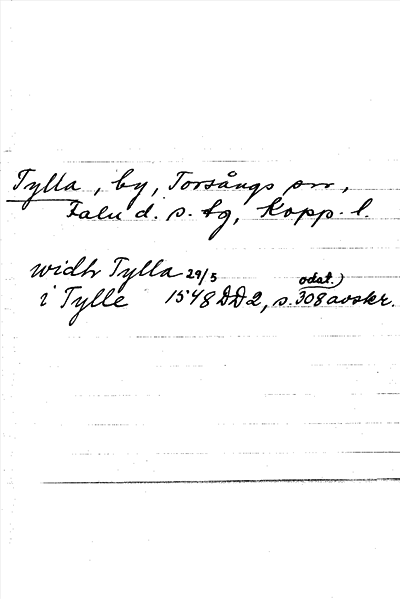 Tylla, by, Torsångs sn,
Falu d. s. tg, Kopp. l.
widh Tylla 29/5
i Tylle 1548 DD2, s. 308 avskr.
odat.)